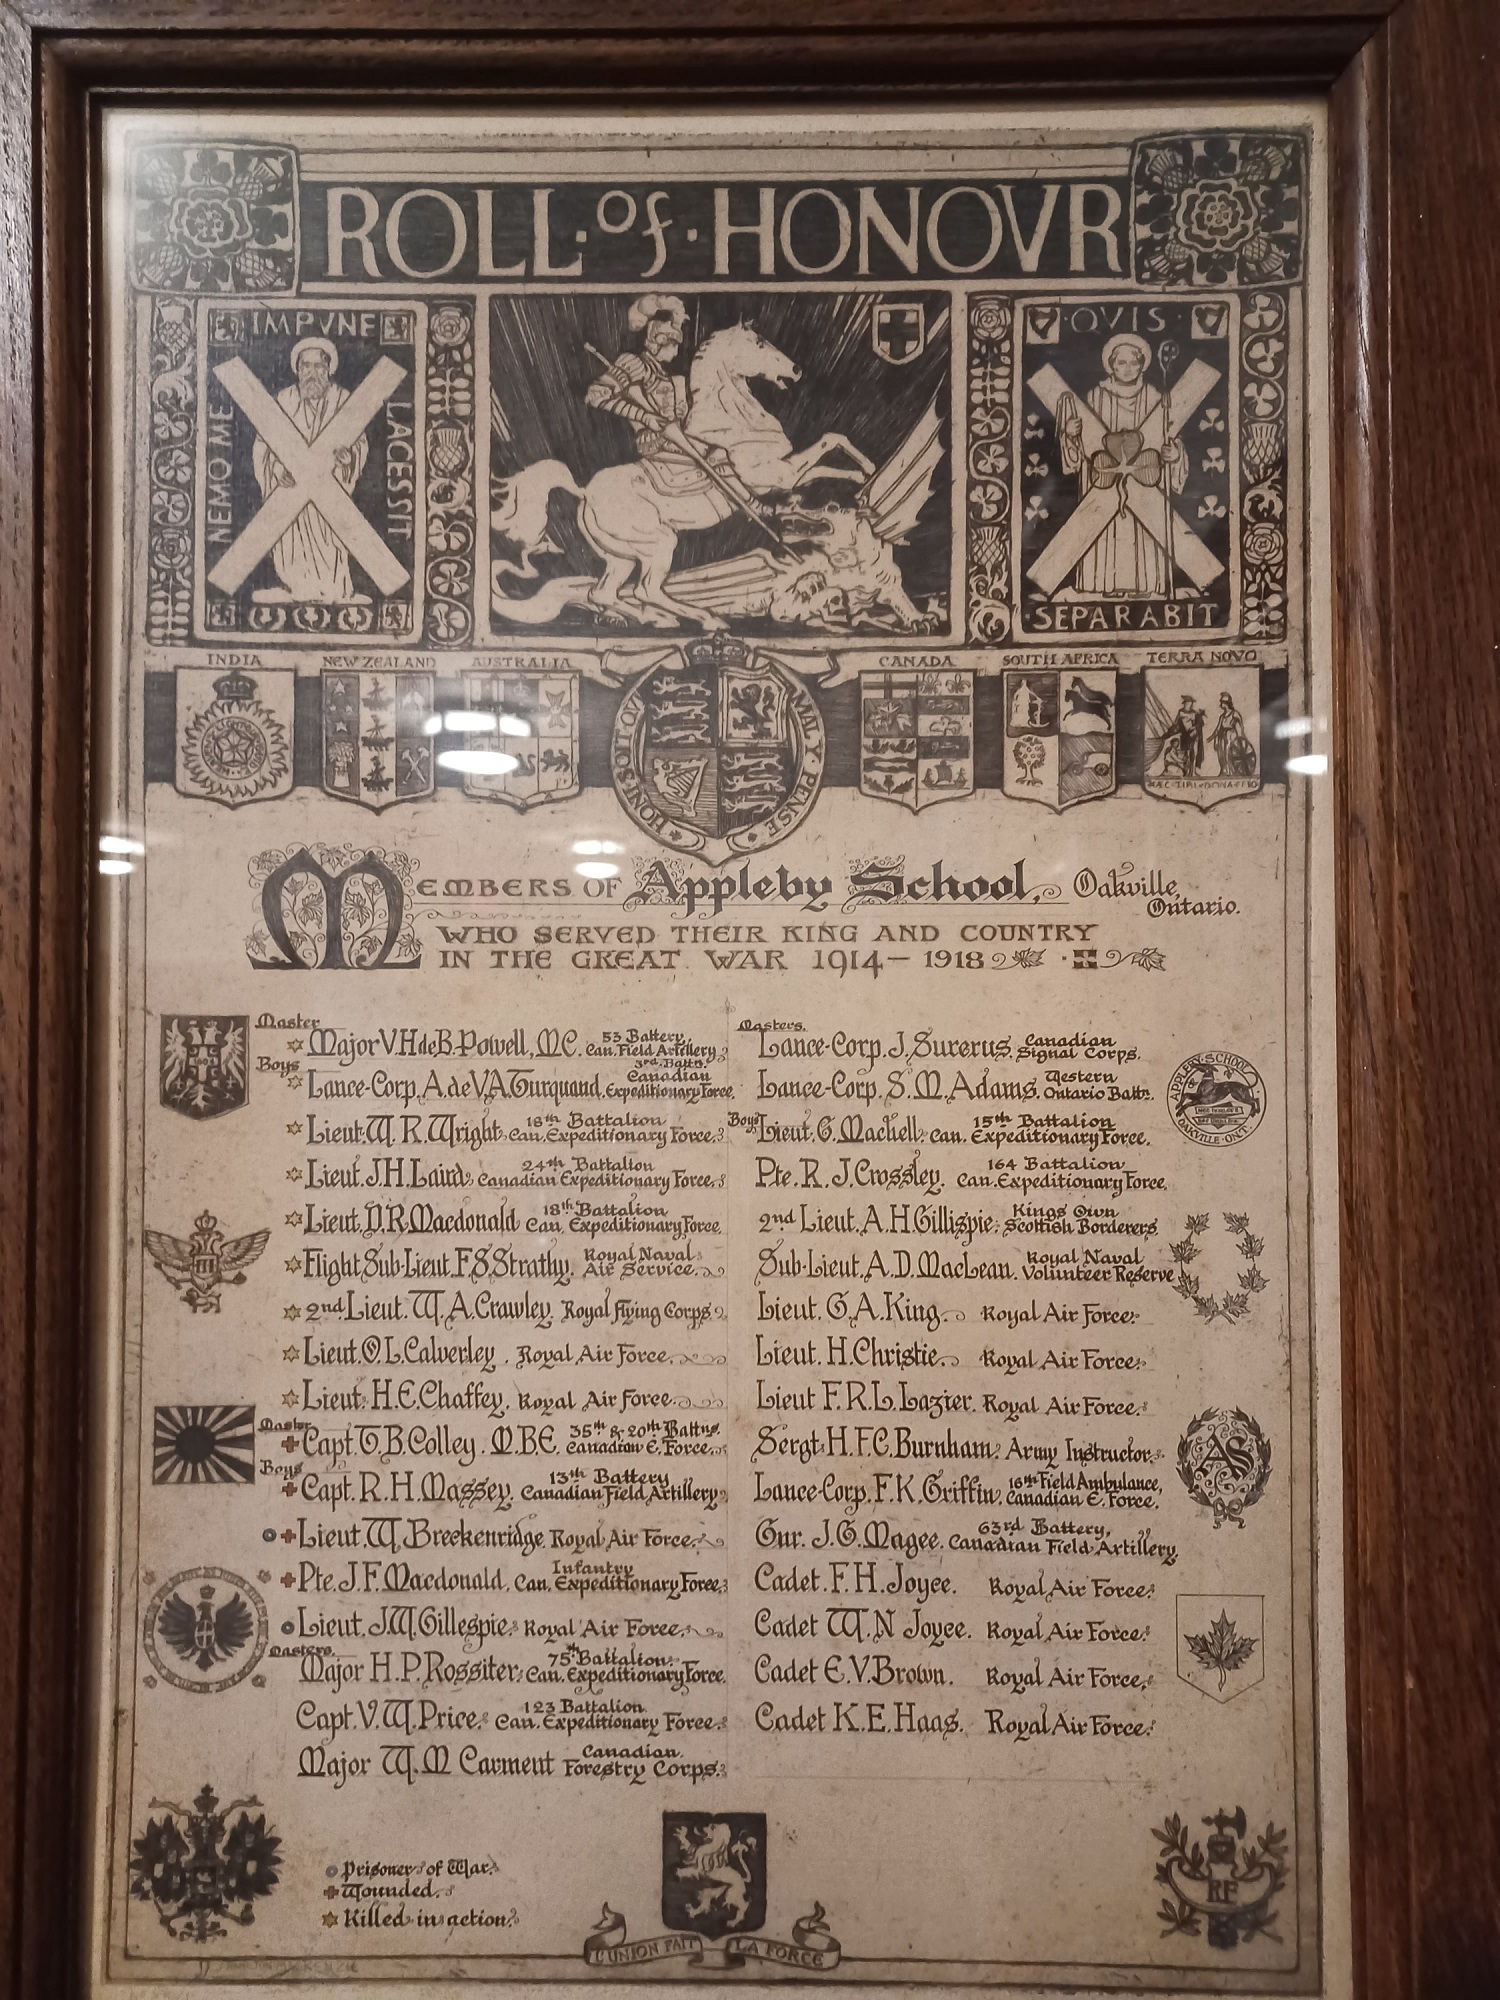 ROLL · of · HONOVR
NEMO ME IMPVNE LACESSIT
QVIS SEPARABIT
INDIA
NEW ZEALAND
AUSTRALIA
CANADA
SOUTH AFRICA
TERRA NOVO
HONI · SOIT · QUI MAL · Y · PENSE
MEMBERS OF Appleby School, Oakville, Ontario.
WHO SERVED THEIR KING AND COUNTRY
IN THE GREAT WAR 1914 – 1918
Master
Major V. H. de B. Powell, M.C. 53 Battery, Can. Field Artillery
Boys
Lance-Corp. A. de V. A. Turquand. 3rd. Battn. Canadian Expeditionary Force.
Lieut. W. R. Wright. 18th Battalion Can. Expeditionary Force.
Lieut. J. H. Laird. 24th Battalion Canadian Expeditionary Force.
Lieut. D. R. Macdonald 18th Battalion Can. Expeditionary Force.
Flight Sub-Lieut. F. S. Strathy. Royal Naval Air Service.
2nd. Lieut. W. A. Crawley. Royal Flying Corps.
Lieut. O. L. Calverley. Royal Air Force.
Lieut. H. E. Chaffey. Royal Air Force.
Master
Capt. T. B. Colley. M.B.E. 35th & 20th Battns. Canadian E. Force.
Boys
Capt. R. H. Massey. 13th Battery Canadian Field Artillery.
Lieut. W. Breckenridge. Royal Air Force.
Pte. J. F. Macdonald. Infantry Can. Expeditionary Force.
Lieut. J. W. Gillespie. Royal Air Force.
Masters.
Major H. P. Rossiter. 75th Battalion. Can. Expeditionary Force.
Capt. V. W. Price. 123 Battalion Can. Expeditionary Force.
Major W. M Carment Canadian. Forestry Corps.
Masters.
Lance-Corp. J. Surerus. Canadian Signal Corps.
Lance-Corp. S. M. Adams. Western Ontario Battn.
Boys
Lieut. G. Machell. 15th Battalion Can. Expeditionary Force.
Pte. R. J. Crossley. 164 Battalion Can. Expeditionary Force.
2nd Lieut. A. H. Gillispie. Kings Own Scottish Borderers.
Sub-Lieut. A. D. MacLean. Royal Naval Volunteer Reserve
Lieut. G. A. King. Royal Air Force.
Lieut. H. Christie. Royal Air Force.
Lieut F. R. L. Lazier. Royal Air Force.
Sergt. H. F. C. Burnham. Army Instructor.
Lance-Corp. F. K. Griffin. 16th Field Ambulance, Canadian E. Force.
Gnr. J. G. Magee. 63rd Battery, Canadian Field Artillery.
Cadet. F. H. Joyce. Royal Air Force.
Cadet W. N Joyce. Royal Air Force.
Cadet E. V. Brown. Royal Air Force.
Cadet K. E. Haas. Royal Air Force.
APPLEBY · SCHOOL
OAKVILLE · ONT.
AS
Prisoner of War.
Wounded.
Killed in action.
L'UNION FAIT LA FORCE
RF